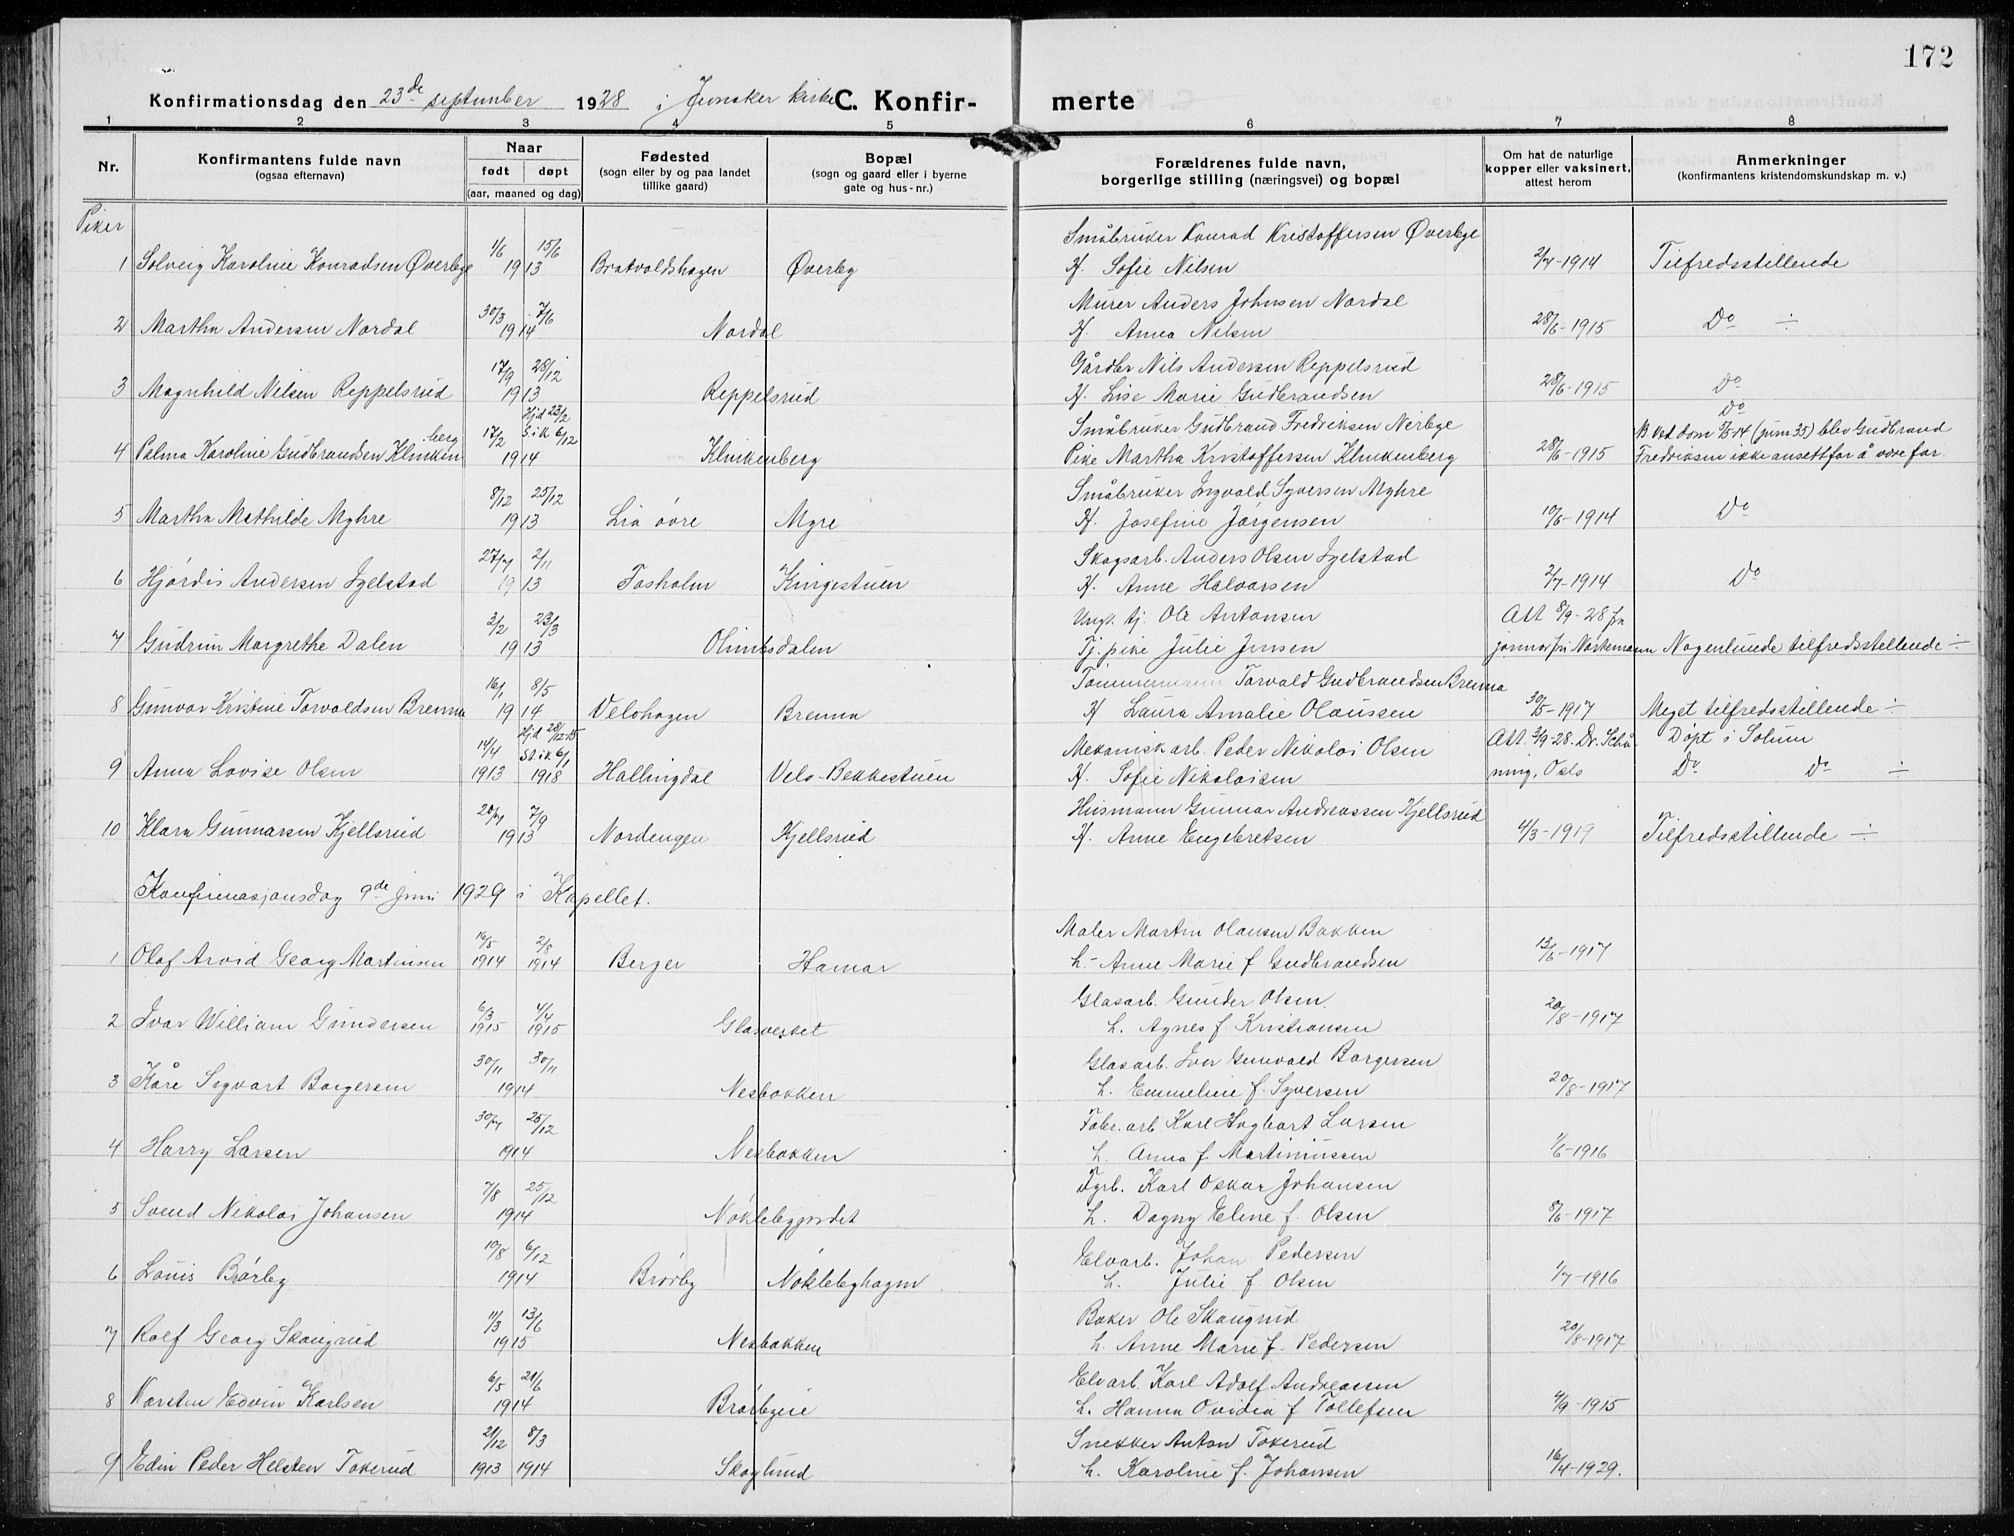 172
Konfirmationsdag den 23de september 1928 i Jevnaker kirke C. Konfir- merte
1 2 3 4 5 6 7 8
Nr. Konfirmantens fulde navn (ogsaa efternavn) Naar født døpt (aar, maaned og dag) Fødested (sogn eller by og paa landet tillike gaard) Bopæl (sogn og gaard eller i byerne gate og hus-nr.) Forældrenes fulde navn, borgerlige stilling (næringsvei) og bopæl Om hat de naturlige kopper eller vaksinert, attest herom Anmerkninger (konfirmantens kristendomskundskap m. v.)
Piker
Småbruker Konrad Kristoffersen Øverbye
1 Solveig Karoline Konradsen Øverbye 1/6 15/6 1913 Bratvoldshagen Øverby H. Sofie Nilsen 2/7-1914 Tilfredsstillende
Murer Anders Johnsen Nordal
2 Martha Andersen Nordal 30/3 7/6 1914 Nordal H. Anna Nilsen 28/6-1915 Do ÷
Gårdbr Nils Andersen Reppelsrud
3 Magnhild Nilsen Reppelsrud 17/9 28/12 1913 Reppelsrud H. Lise Marie Gudbrandsen 28/6-1915 Do
Småbruker Gudbrand Fredriksen Nerbye Do
4 Palma Karoline Gudbrandsen Klinkenberg 17/2 Hjd 23/2 S.i.k 6/12 1914 Klinkenberg Pike Martha Kristoffersen Klinkenberg 28/6-1915 Ved dom 7/5-14 (jum 35) blev Gudbrand Fredriksen ikke ansett for å være far.
Småbruker Ingvald Syversen Myhre
5 Martha Mathilde Myhre 8/12 25/12 1913 Lia øvre Myre H. Josefine Jørgensen 10/6-1914 Do
Skogsarb. Anders Olsen Igelstad
6 Hjørdis Andersen Igelstad 27/7 2/11 1913 Fosholm Kingestuen H. Anne Halvorsen 2/7-1914 Do
Ungk. tj. Ole Antonsen Att 8/9-28 fra
7 Gudrun Margrethe Dalen 2/2 23/3 1913 Olimbsdalen Tj. pike Julie Jensen jormor fru Morkemann Nogenlunde tilfredsstillende ÷
Tømmermann Torvald Gudbrandsen Brenna
8 Gunvor Kristine Torvaldsen Brenna 16/1 8/5 1914 Velohagen Brenna H Laura Amalie Olaussen 30/5-1917 Meget tilfredsstillende ÷
Mekanisk arb. Peder Nikolai Olsen Att. 3/9-28. Dr. Schø- Døpt i Solum
9 Anna Lovise Olsen 14/4 1913 Hjd 28/12-15 St.i.k 6/1 1918 Hallingdal Velo-Bekkestuen H. Sofie Nikolaisen ning, Oslo Do Do ÷
Husmann Gunnar Andreassen Kjellsrud
10 Klara Gunnarsen Kjellsrud 20/7 7/9 1913 Nordengen Kjellsrud H. Anne Engebretsen 4/3-1919 Tilfredsstillende ÷
Konfirmasjonsdag 9de juni 1929 i Kapellet.
Maler Martin Olausen Bakken
1 Olaf Arvid Georg Martinsen 16/5 1914 2/8 1914 Berger Hamar h. Anne Marie f Gudbrandsen 13/6-1917
Glasarb. Gunder Olsen
2 Ivar William Gundersen 6/3 1915 4/4 1915 Glasverket h. Agnes f. Kristiansen 20/8-1917
Glasarb. Iver Gunvald Borgersen
3 Kåre Sigvart Borgersen 30/11 30/11 1914 Nesbakken h. Emmeline f. Syversen 20/8-1917
Fabr. arb. Karl Hagbart Larsen
4 Harry Larsen 30/7 25/12 1914 Nesbakken h. Anna f Martiniussen 1/6-1916
Fyrb. Karl Oskar Johansen
5 Svend Nikolai Johansen 7/8 25/12 1914 Nøklebyjordet h. Dagny Eline f. Olsen 8/6-1917
Elvarb. Johan Pedersen
6 Louis Brørby 10/8 6/12 1914 Brørby Nøklebyhagen h. Julie f. Olsen 1/7-1916
Baker Ole Skaugrud
7 Rolf Georg Skaugrud 11/3 13/6 1915 Nesbakken h. Anne Marie f. Pedersen 20/8-1917
Elvarb. Karl Adolf Andreassen
8 Karsten Edvin Karlsen 6/5 21/6 1914 Brørbyeie h. Hanna Ovidia f Tollefsen 4/9-1915
Snekker Anton Tokerud
9 Edin Peder Helsten Tokerud 21/12 1913 8/3 1914 Skoglund h. Karoline f. Johansen 16/4-1929.